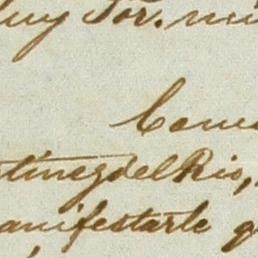 uy Sor. mi
Com
tinez del Rio,
anifestarle q